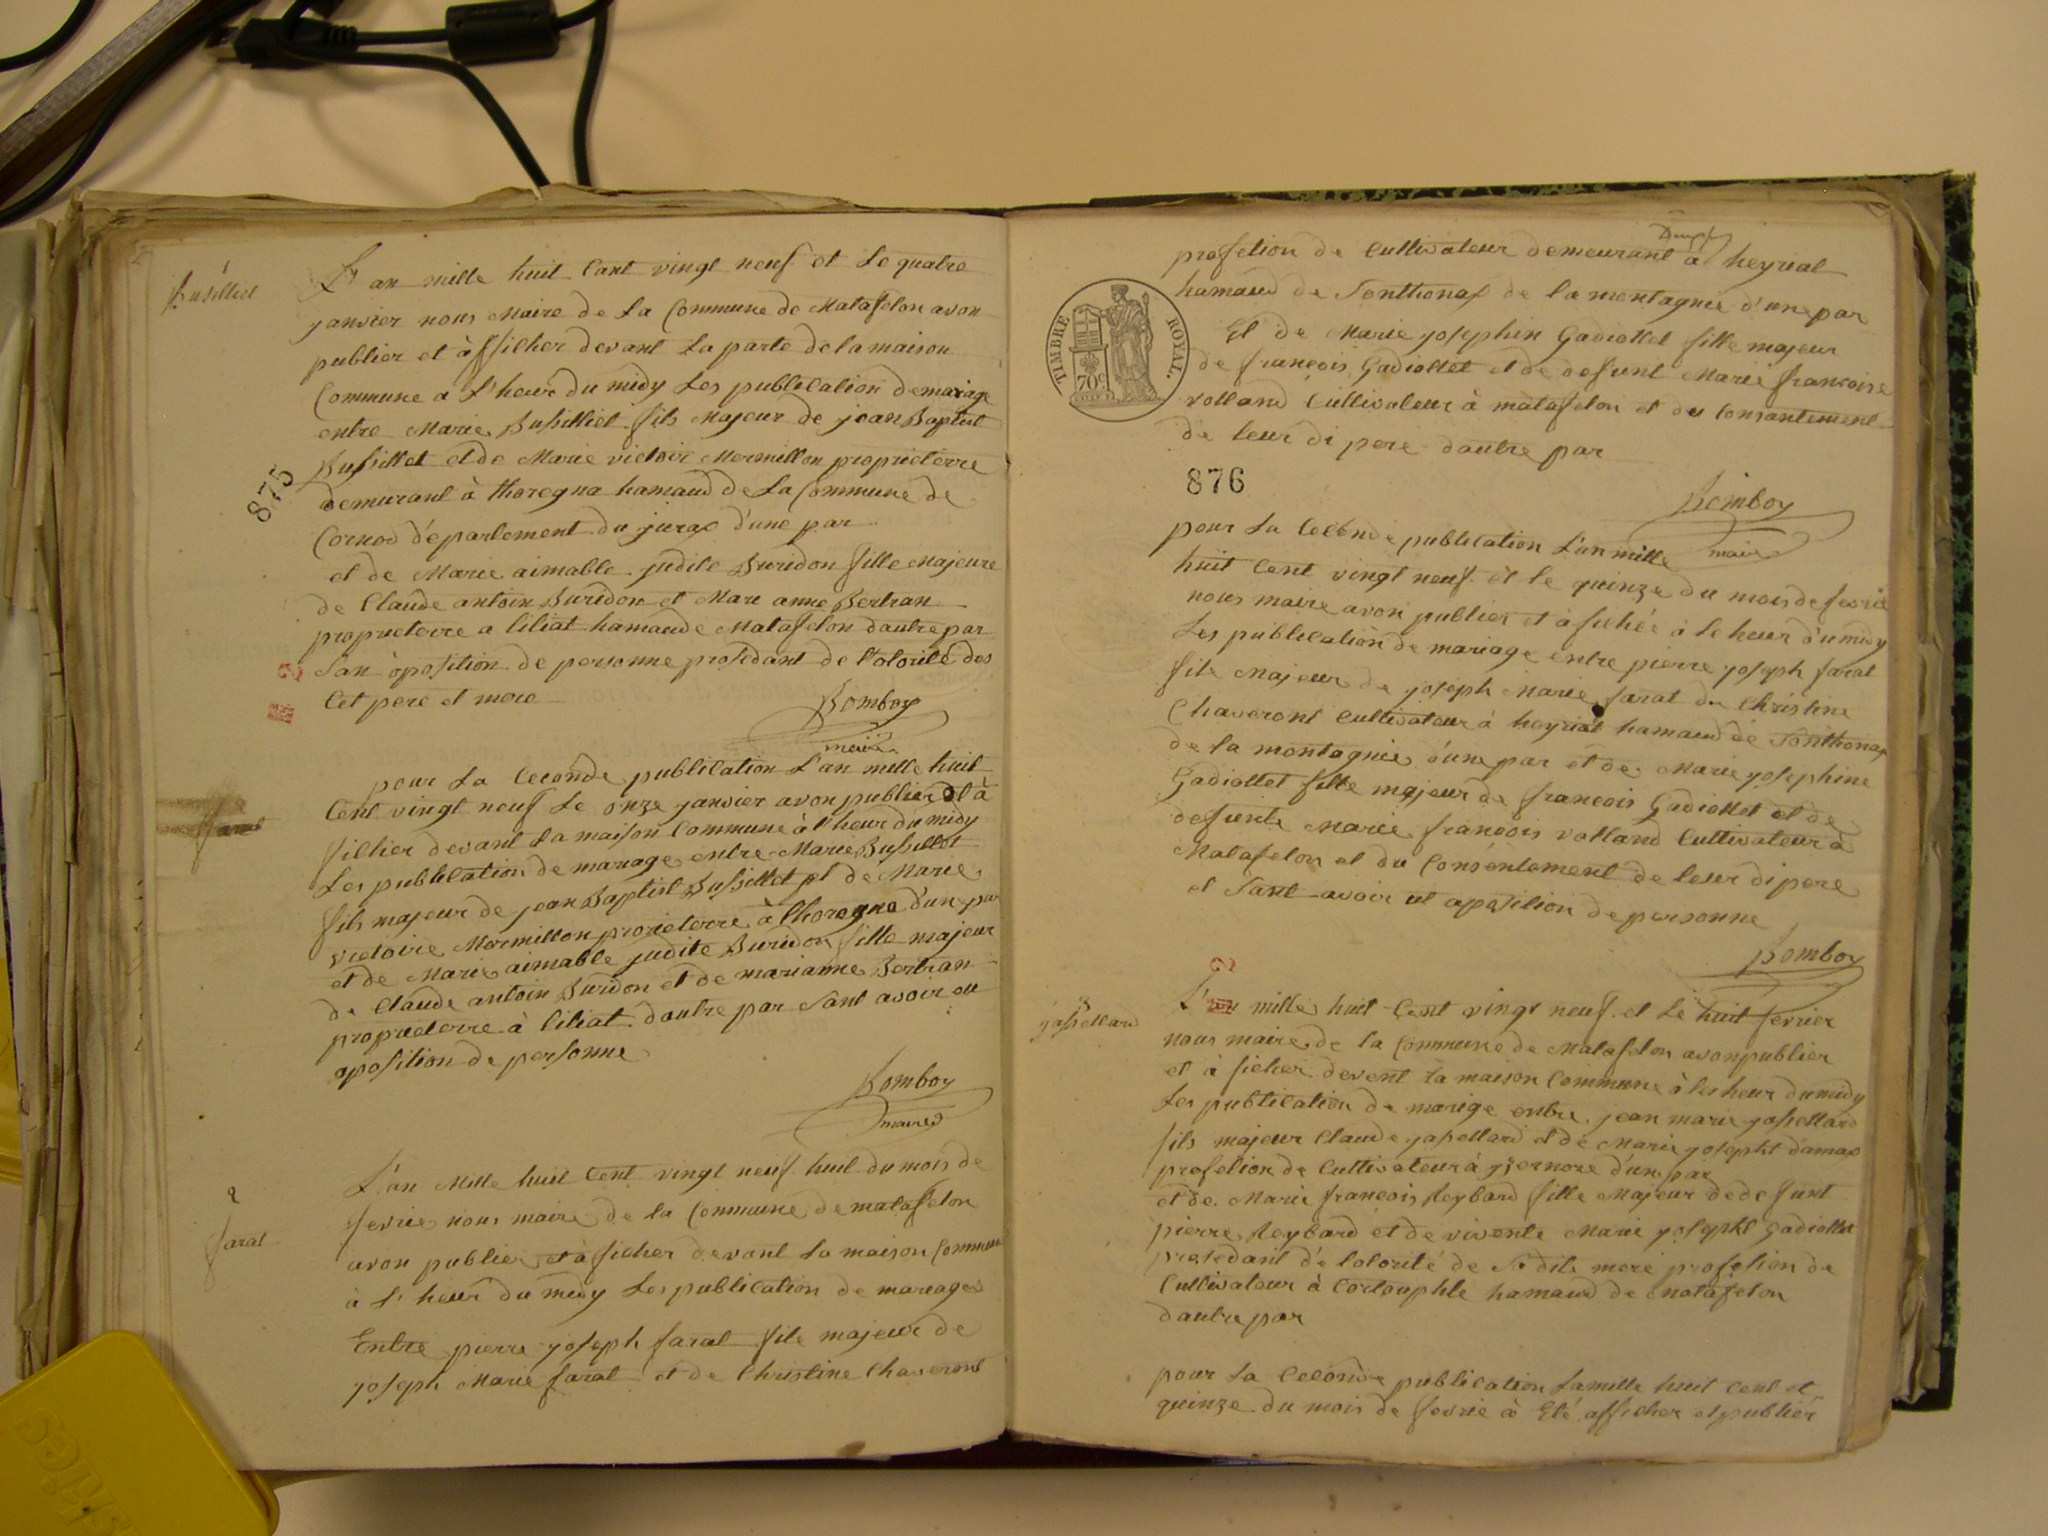 Busilliet
L'an mille huit Cent vingt neuf et Le quatre
janvier nous Maire de La Commune de Matafelon avon
publier et àfficher devant La porte de la maison
Commune a L'heur du midy Les publication de mariage
entre Marie Bussilliet fils Majeur de jean Baptist
Bussillet et de Marie victoir Mermillon proprieterre
demurant à thoregna hamaud de La Commune de
Cornod département du jurat d'une par
et de Marie aimable judile Buridon fille Majeure
de Claude antoin Buridon et Mare anne Bertran
proprieterre a Ciliat hamaud de Matafelon dautre par
San òposition de personne prosedant de l'otorité des
Cet pere et mere
Bomboy
maire
875
pour La Ceconde publication L'an mille huit
Cent vingt neuf Le onze janvier avon publier et à
fichier devant La maison Commune à l'heur du midy
Les publication de mariage entre Marie Busillet
fils majeur de jean Baptist Bussillet et de Marie
victoire Mermillon proieterre à thoregna d'un par
et de Marie aimable judite Buridon fille majeur
de Claude antoin Buridon et de marianne Bertran
proprieterre à Ciliat dautre par Sant avoir eu
oposition de personne
Bomboy
maire
farat
2
farat
L'an Mille huit Cent vingt neuf huit du mois de
fevrie nous maire de la Commune de matafelon
avon publier et àficher devant La maison Commune
à L'heur du midy Les publication de mariage
Entre pierre joseph farat fils majeur de
joseph Marie farat et de Christine Chaveront
profetion de Cultivateur demeurant à heyriat
hamaud de Sonthonax de la montagnie d'une par
Et de Marie josephin Gadiollet fille majeur
de francois Gadiollet et de defunt Marie francoise
volland Cultivateur à matafelon et du Consantement
de leur di pere dautre par
TIMBRE ROYAL.
70c
876
Bomboy
maire
pour La Ceconde publication L'an mille
huit Cent vingt neuf et le quinze du mois de fevrie
nous maire avon publier et àfiché à le heur du midy
Les publication de mariage entre pierre joseph farat
fils Majeur de joseph Marie farat du Christine
Chaveront Cultivateur à heyriat hamaud de Sonthonax
de la montagnie d'une par et de Marie josephine
Gadiollet fille majeur de francois Gadiollet et de
defunte Marie francois volland Cultivateur à
Matafelon et du Consentement de leur di pere
et Sant avoir ut oposition de personne
Bomboy
3
jassellard
L'an mille huit Cent vingt neuf et Le huit fevrier
nous maire de la Commune de Matafelon avon publier
et à ficher devent La maison Commune à les heur du midy
Les publication de marige entre jean marie josellard
fils majeur Claude jasellard et de Marie josepht damas
profetion de Cultivateur à yzernore d'une par
et de Marie francois Reybard fille Majeur de defunt
pierre Reybard et de vivente Marie josepht Gadiollet
prosedant de lotorité de Sa dite mere profetion de
Cultivateur à Cortouphle hamaud de matafelon
dautre par
pour La Ceconde publication Lamille huit Cent et
quinze du mois de fevrie à Eté afficher et publier